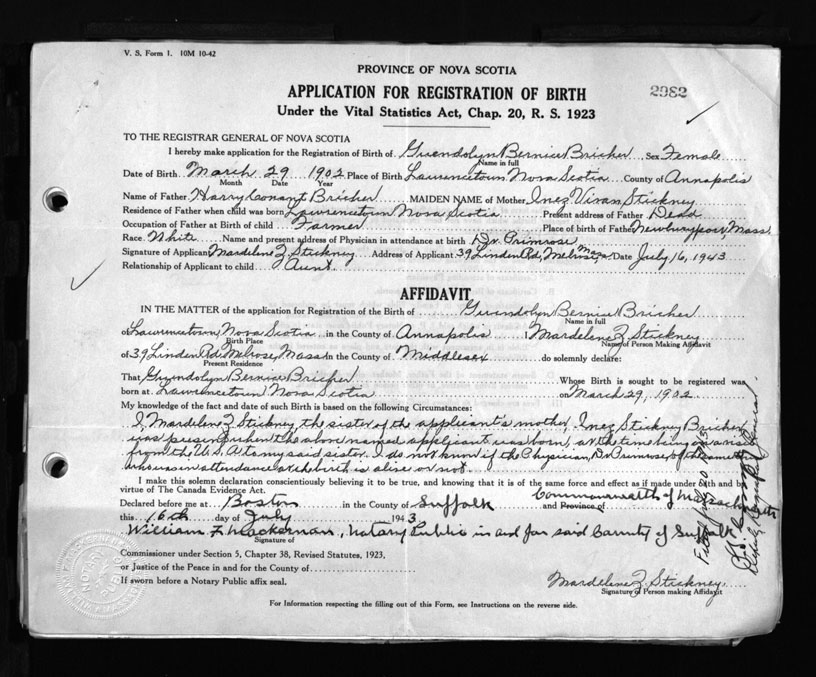 V. S. Form 1. 10M 10-42
PROVINCE OF NOVA SCOTIA
APPLICATION FOR REGISTRATION OF BIRTH
2982
Under the Vital Statistics Act, Chap. 20, R. S. 1923
TO THE REGISTRAR GENERAL OF NOVA SCOTIA
I hereby make application for the Registration of Birth of Gwendolyn Bernice Bricher Sex Female
Name in full
Date of Birth March 29 1902 Place of Birth Lawrencetown Nova Scotia County of Annapolis
Month Date Year
Name of Father Harry Conant Bricher MAIDEN NAME of Mother Inez Vivan Stickney
Residence of Father when child was born Lawrencetown Nova Scotia Present address of Father Dead
Occupation of Father at Birth of child Farmer Place of birth of Father Newburyport, Mass
Race White Name and present address of Physician in attendance at birth Dr. Primrose
Signature of Applicant Mardelene Z. Stickney Address of Applicant 39 Linden Rd, Melrose, Mass Date July 16, 1943
Relationship of Applicant to child Aunt
AFFIDAVIT
IN THE MATTER of the application for Registration of the Birth of Gwendolyn Bernice Bricher
Name in full
of Lawrencetown, Nova Scotia in the County of Annapolis Mardelene Z. Stickney
Birth Place Name of Person Making Affidavit
of 39 Linden Rd. Melrose, Mass in the County of Middlesex do solemnly declare:
Present Residence
That Gwyndolyn Bernice Bricher Whose Birth is sought to be registered was
born at Lawrencetown Nova Scotia on March 29, 1902
My knowledge of the fact and date of such Birth is based on the following Circumstances:
I, Mardelene Z. Stickney, the sister of the applicant's mother Inez Stickney Bricher
was present when the above named applicant was born, at the time being on a visit
from the U.S.A. to my said sister. I do not know if the Physician, Dr. Primrose, of the same
who was in attendance at the birth is alive or not.
I make this solemn declaration conscientiously believing it to be true, and knowing that it is of the same force and effect as if made under oath and by
virtue of The Canada Evidence Act.
Declared before me at Boston in the County of Suffolk and Province of Commonwealth of Massachusetts
this 16th day of July 1943
William F. Mackernan, Notary Public in and for said County of Suffolk
Signature of
Commissioner under Section 5, Chapter 38, Revised Statutes, 1923,
or Justice of the Peace in and for the County of
If sworn before a Notary Public affix seal.
Mardelene Z. Stickney
Signature of Person making Affidavit
For Information respecting the filling out of this Form, see Instructions on the reverse side.